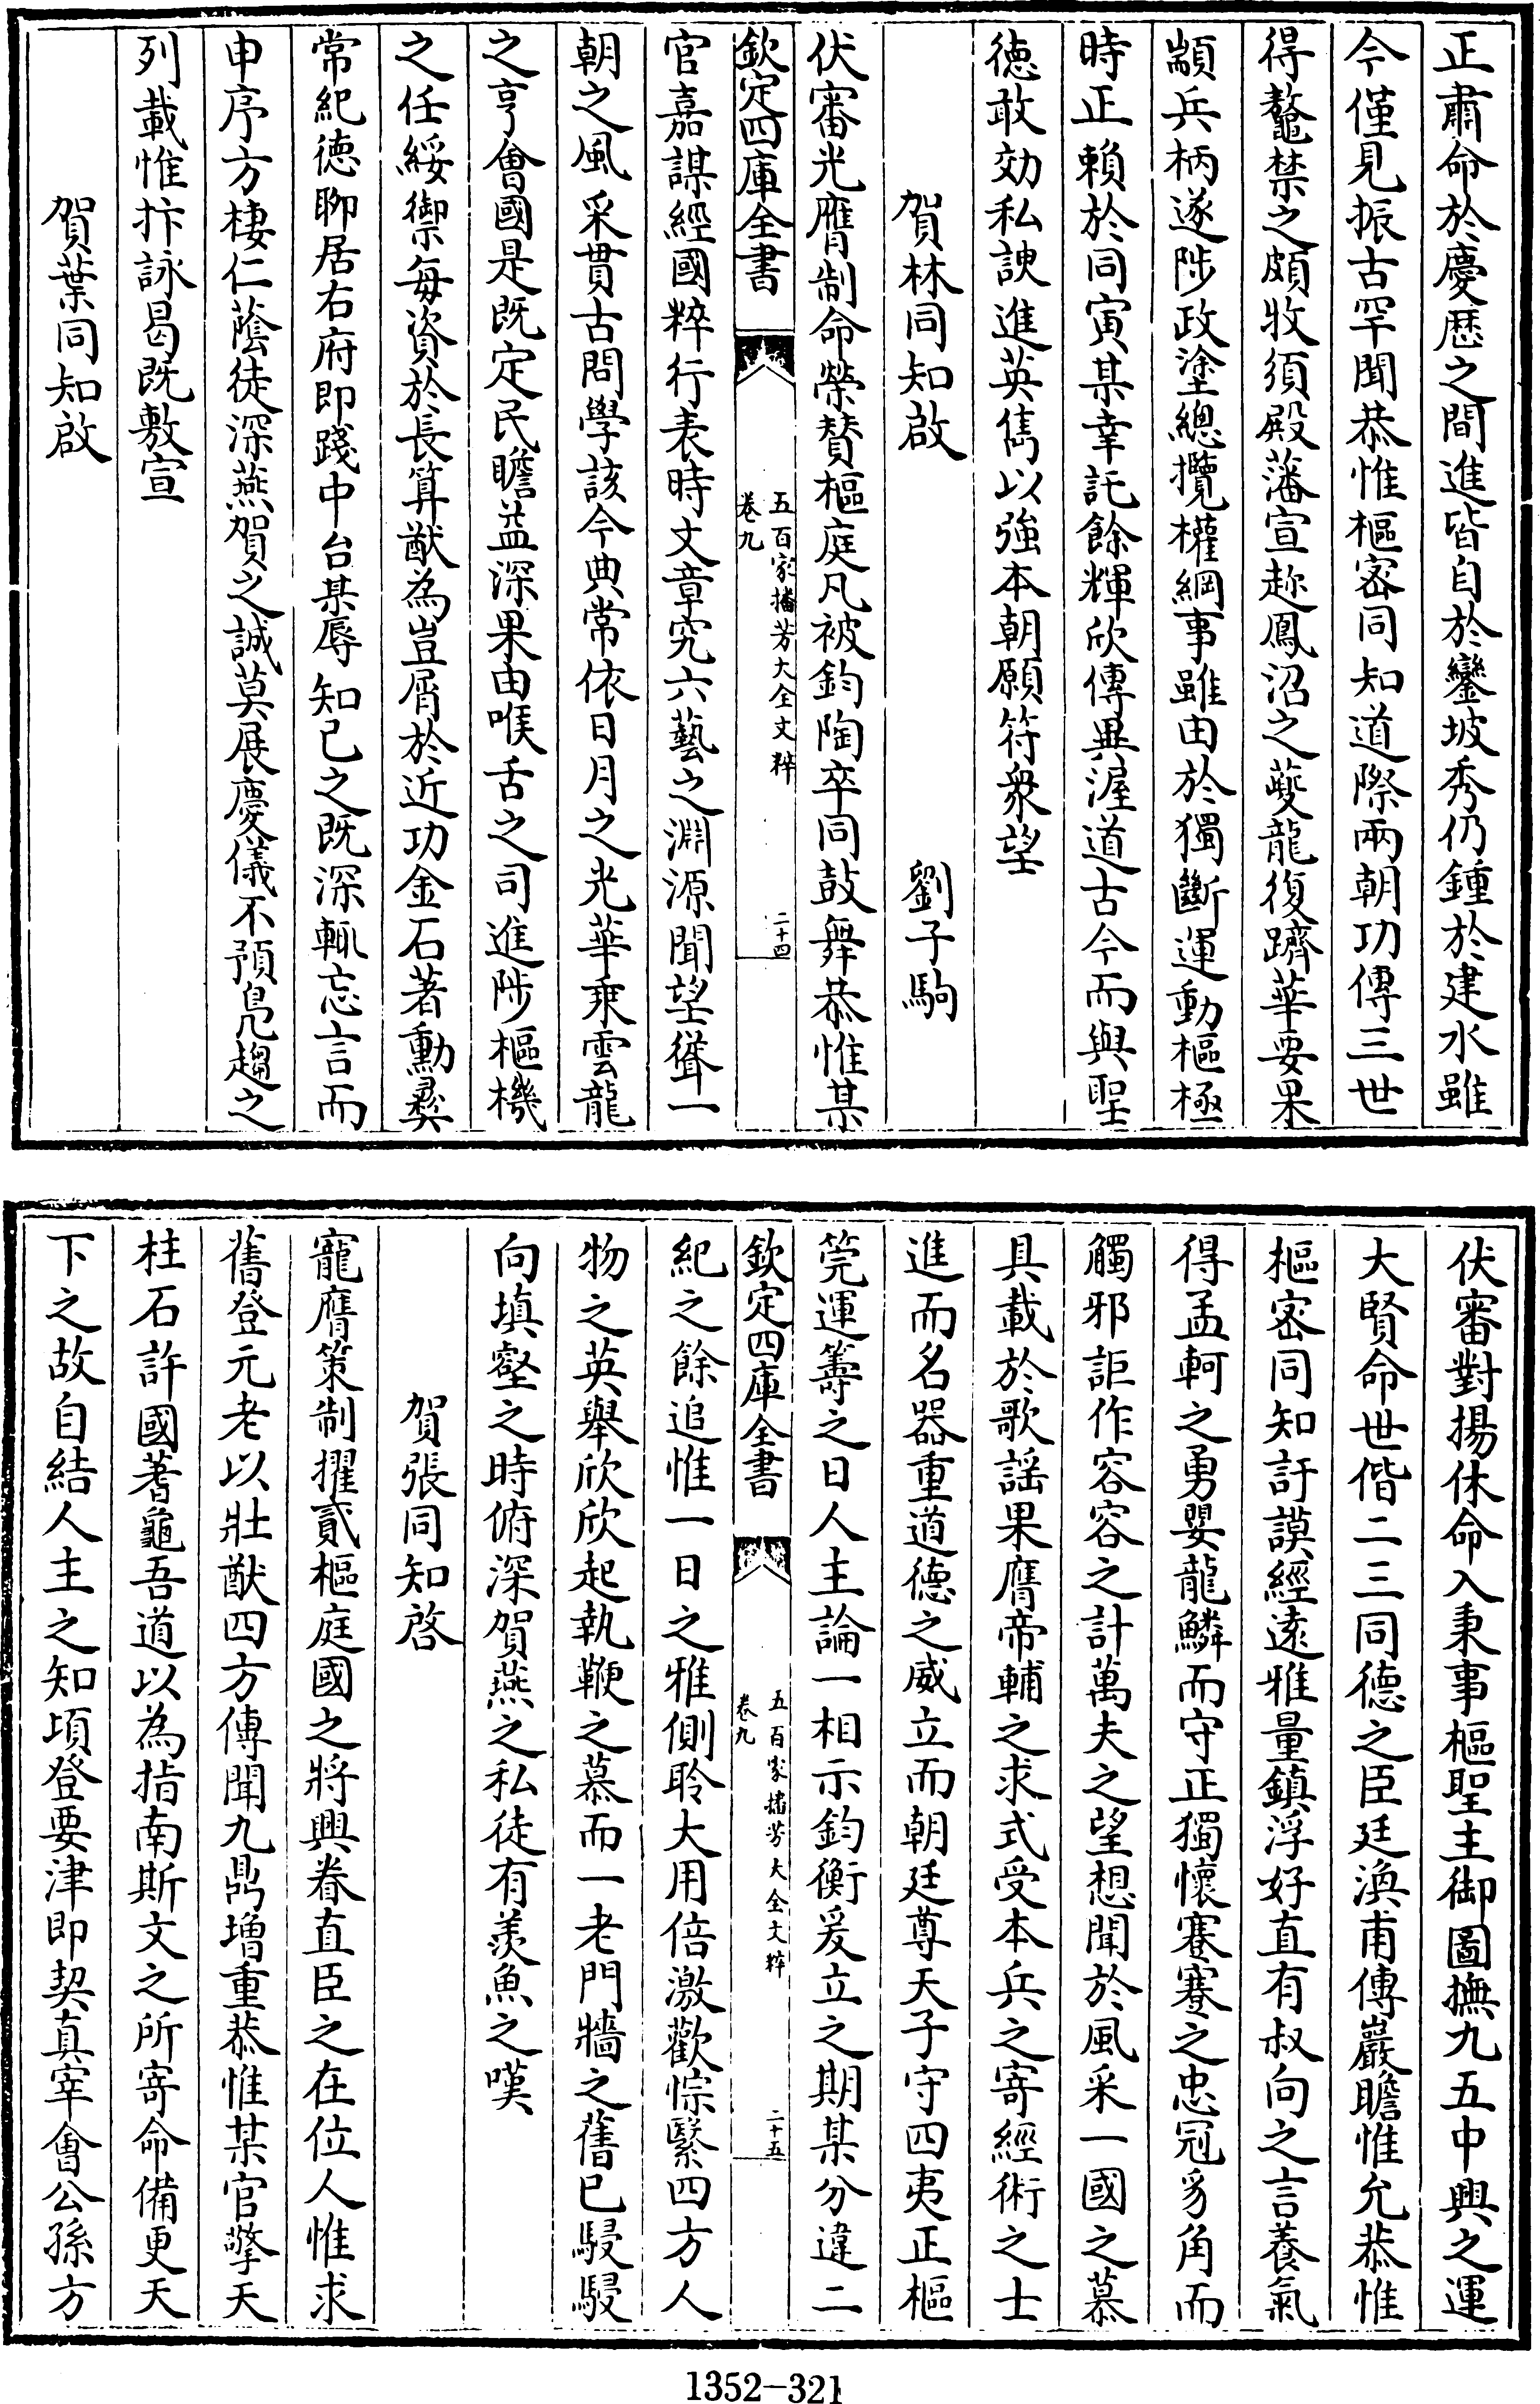 正肅命於慶歴之間進皆自於鑾坡秀仍鍾於建水雖
今僅見振古罕聞恭惟樞密同知道際兩朝功傳三世
得鼇禁之頗牧須殿藩宣趂鳳沼之夔龍復躋華要果
顓兵柄遂陟政塗總攬權綱事雖由於獨斷運動樞極
時正賴於同寅某幸託餘輝欣傳異渥道古今而與聖
徳敢効私諛進英雋以強本朝願符衆望
賀林同知啟 劉子駒
伏審光膺制命榮賛樞庭凡被鈞陶卒同鼓舞恭惟某
欽定四庫全書 五百家播芳大全文粹 卷九 二十四
官嘉謀經國粹行表時文章究六藝之淵源聞望聳一
朝之風采貫古問學該今典常依日月之光華乗雲龍
之亨會國是既定民瞻益深果由喉舌之司進陟樞機
之任綏禦每資於長算猷為豈屑於近功金石著勳彛
常紀徳聊居右府即踐中台某辱知已之既深輒忘言而
申序方棲仁蔭徒深燕賀之誠莫展慶儀不預鳬趨之
列載惟抃詠曷既敷宣
賀葉同知啟
伏審對揚休命入秉事樞聖主御圖撫九五中興之運
大賢命世偕二三同德之臣廷渙甫傳巖瞻惟允恭惟
樞密同知訏謨經遠雅量鎮浮好直有叔向之言養氣
得孟軻之勇嬰龍鱗而守正獨懷蹇蹇之忠冠豸角而
觸邪詎作容容之計萬夫之望想聞於風采一國之慕
具載於歌謡果膺帝輔之求式受本兵之寄經術之士
進而名器重道徳之威立而朝廷尊天子守四夷正樞
筦運籌之日人主論一相示鈞衡爰立之期某分違二
欽定四庫全書 五百家播芳大全文粹 卷九 二十五
紀之餘追惟一日之雅側聆大用倍激歡悰繄四方人
物之英舉欣欣起執鞭之慕而一老門牆之舊已駸駸
向填壑之時俯深賀燕之私徒有羡魚之嘆
賀張同知啓
寵膺策制擢貳樞庭國之將興眷直臣之在位人惟求
舊登元老以壯猷四方傳聞九鼎增重恭惟某官擎天
柱石許國蓍龜吾道以為指南斯文之所寄命備更天
下之故自結人主之知頃登要津即契真宰會公孫方
1352-321